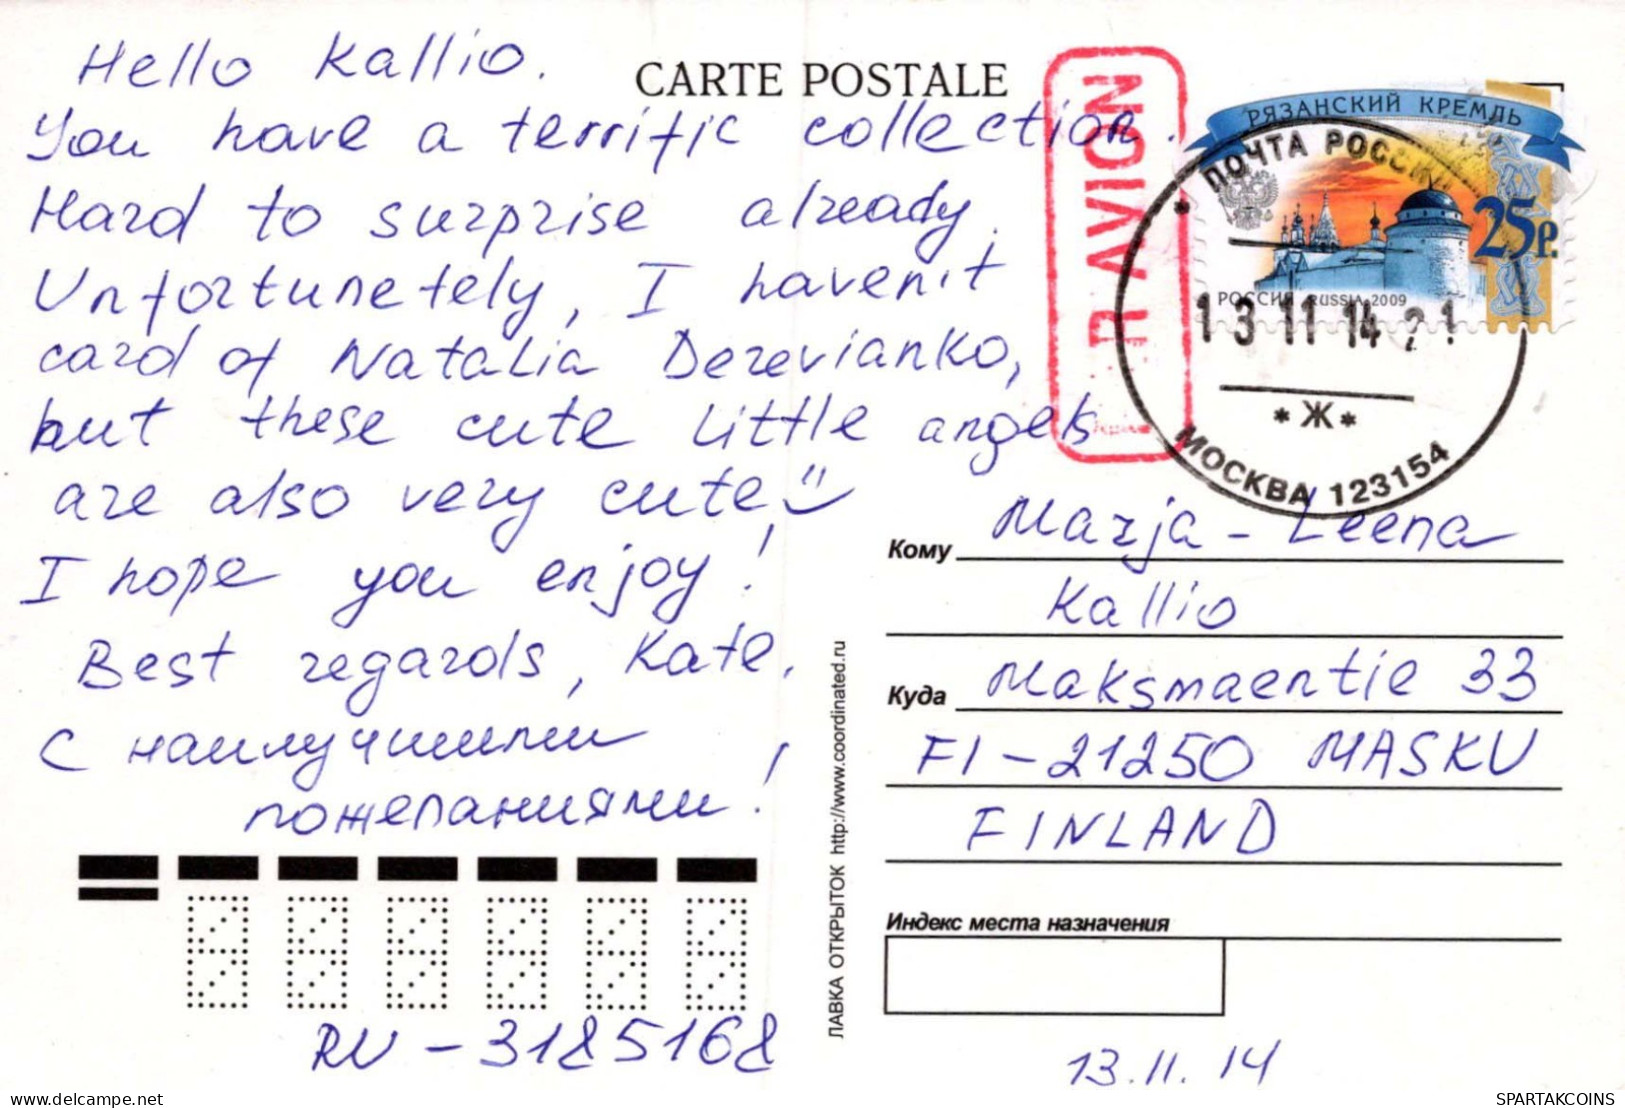 Hello Kallio.
You have a terrific collection.
Hard to surprise already.
Unfortunetely, I haven't
card of Natalia Derevianko,
but these cute little angels
are also very cute
I hope you enjoy!
Best regards, Kate.
С наилучшими
пожеланиями!
RU-3185168
CARTE POSTALE
R AVION
РЯЗАНСКИЙ КРЕМЛЬ
25р.
РОССИЯ RUSSIA 2009
ПОЧТА РОССИИ
13 11 14 21
*Ж*
МОСКВА 123154
Кому Marja-Leena
Kallio
Куда Maksmaentie 33
FI-21250 MASKU
FINLAND
Индекс места назначения
13.11.14
ЛАВКА ОТКРЫТОК http://www.coordinated.ru
delcampe.net
SPARTAKCOINS